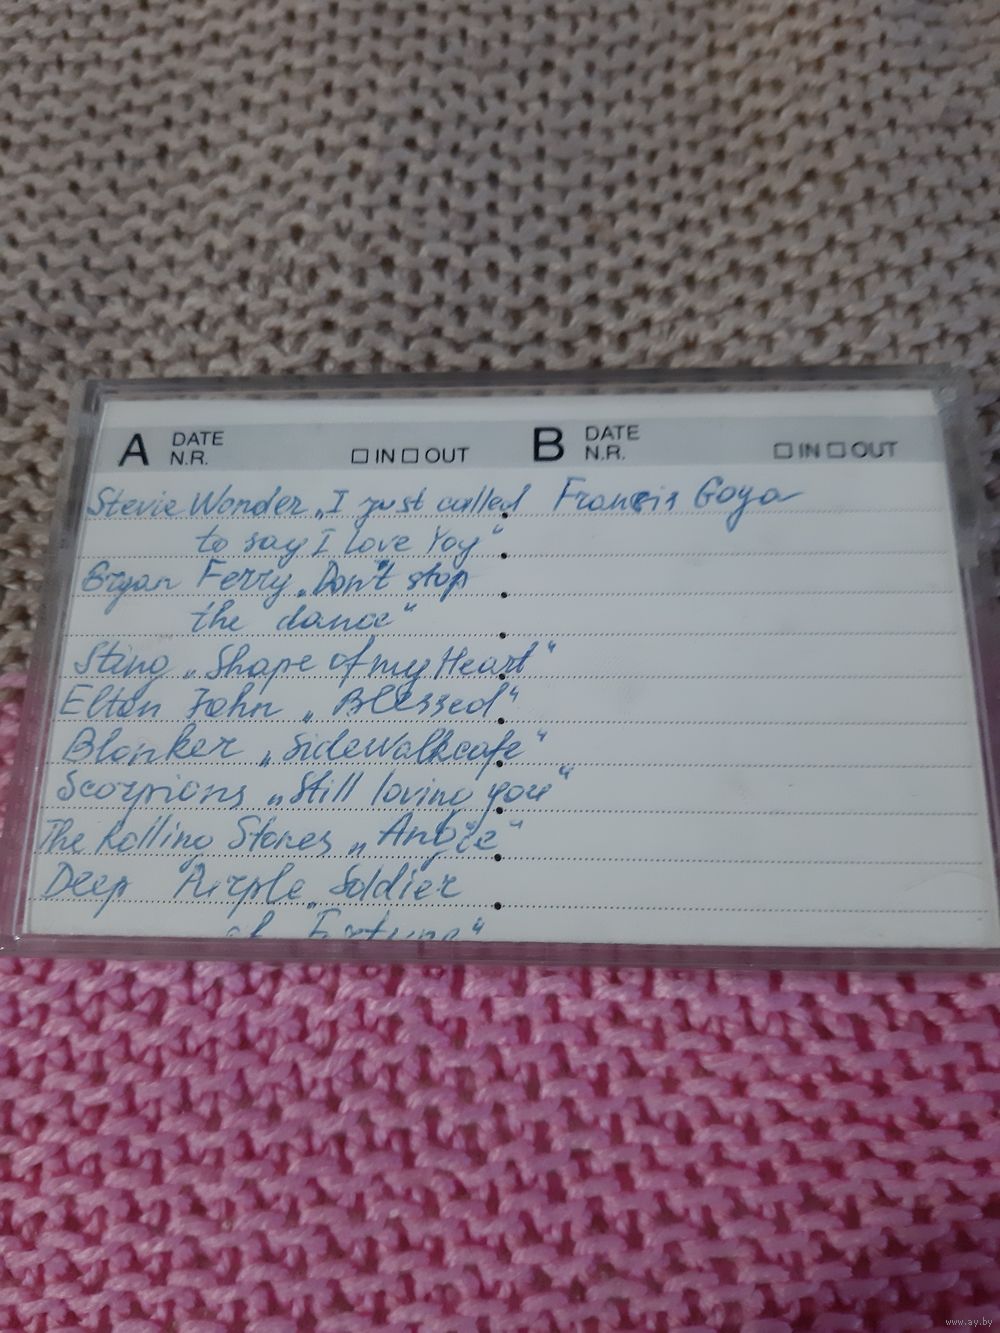 A DATE N.R. ☐ IN ☐ OUT
B DATE N.R. ☐ IN ☐ OUT
Stevie Wonder „I just called
to say I love Yoy“
Bryan Ferry „Don't stop
the dance“
Sting „Shape of my Heart“
Elton John „Blessed“
Blonker „Sidewalkcafe“
Scorpions „Still loving you“
The Rolling Stones „Angie“
Deep Purple „Soldier
of Fortune“
Francis Goya
www.ay.by